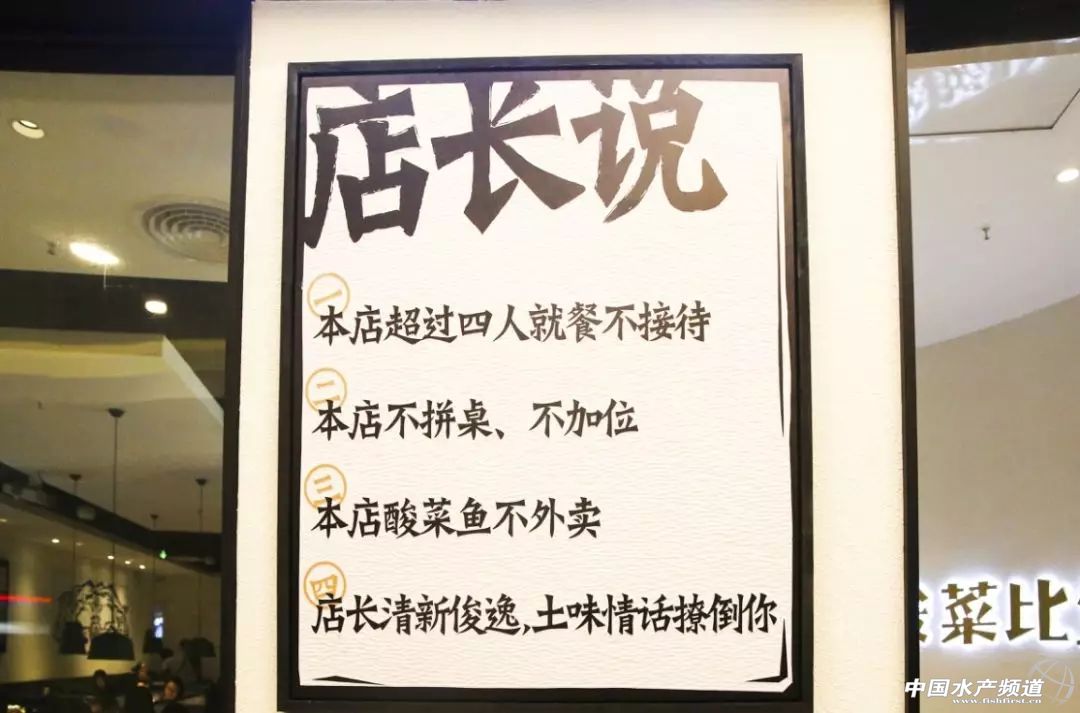 店长说
一
本店超过四人就餐不接待
二
本店不拼桌、不加位
三
本店酸菜鱼不外卖
四
店长清新俊逸,土味情话撩倒你
菜比
中国水产频道
www.fishfirst.cn